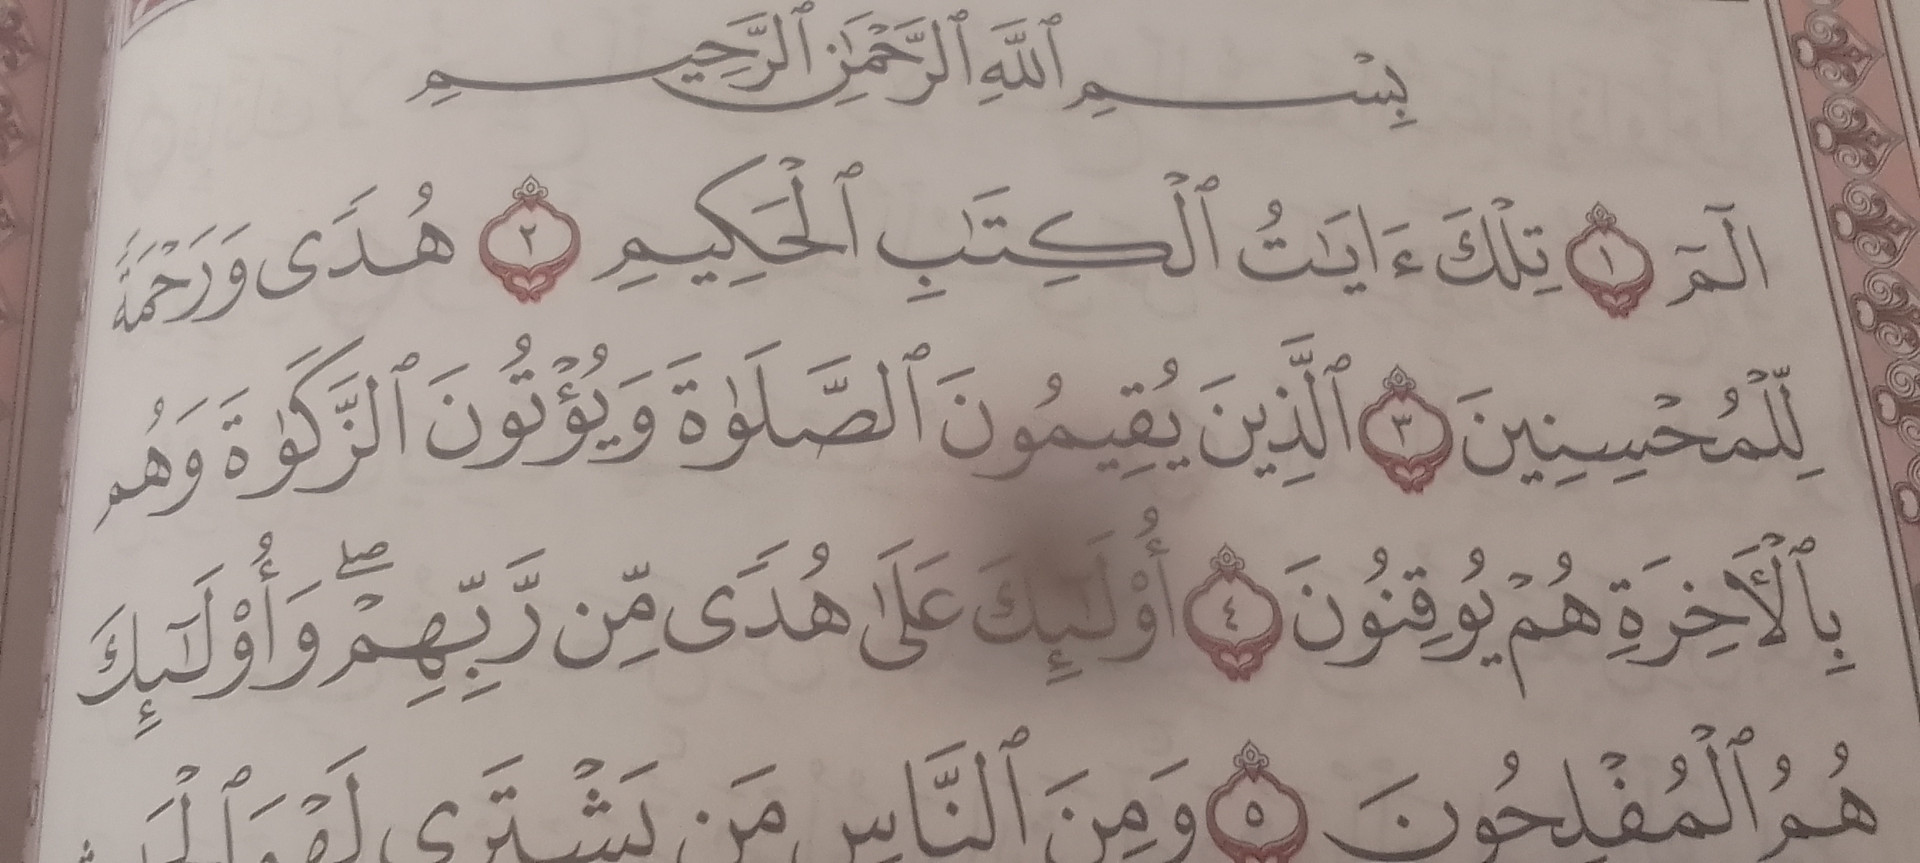 بِسْمِ ٱللَّهِ ٱلرَّحْمَٰنِ ٱلرَّحِيمِ
الٓمٓ ١ تِلْكَ ءَايَٰتُ ٱلْكِتَٰبِ ٱلْحَكِيمِ ٢ هُدًى وَرَحْمَةً
لِّلْمُحْسِنِينَ ٣ ٱلَّذِينَ يُقِيمُونَ ٱلصَّلَوٰةَ وَيُؤْتُونَ ٱلزَّكَوٰةَ وَهُم
بِٱلْأَخِرَةِ هُمْ يُوقِنُونَ ٤ أُوْلَٰٓئِكَ عَلَىٰ هُدًى مِّن رَّبِّهِمْۖ وَأُوْلَٰٓئِكَ
هُمُ ٱلْمُفْلِحُونَ ٥ وَمِنَ ٱلنَّاسِ مَن يَشْتَرِى لَهْوَ